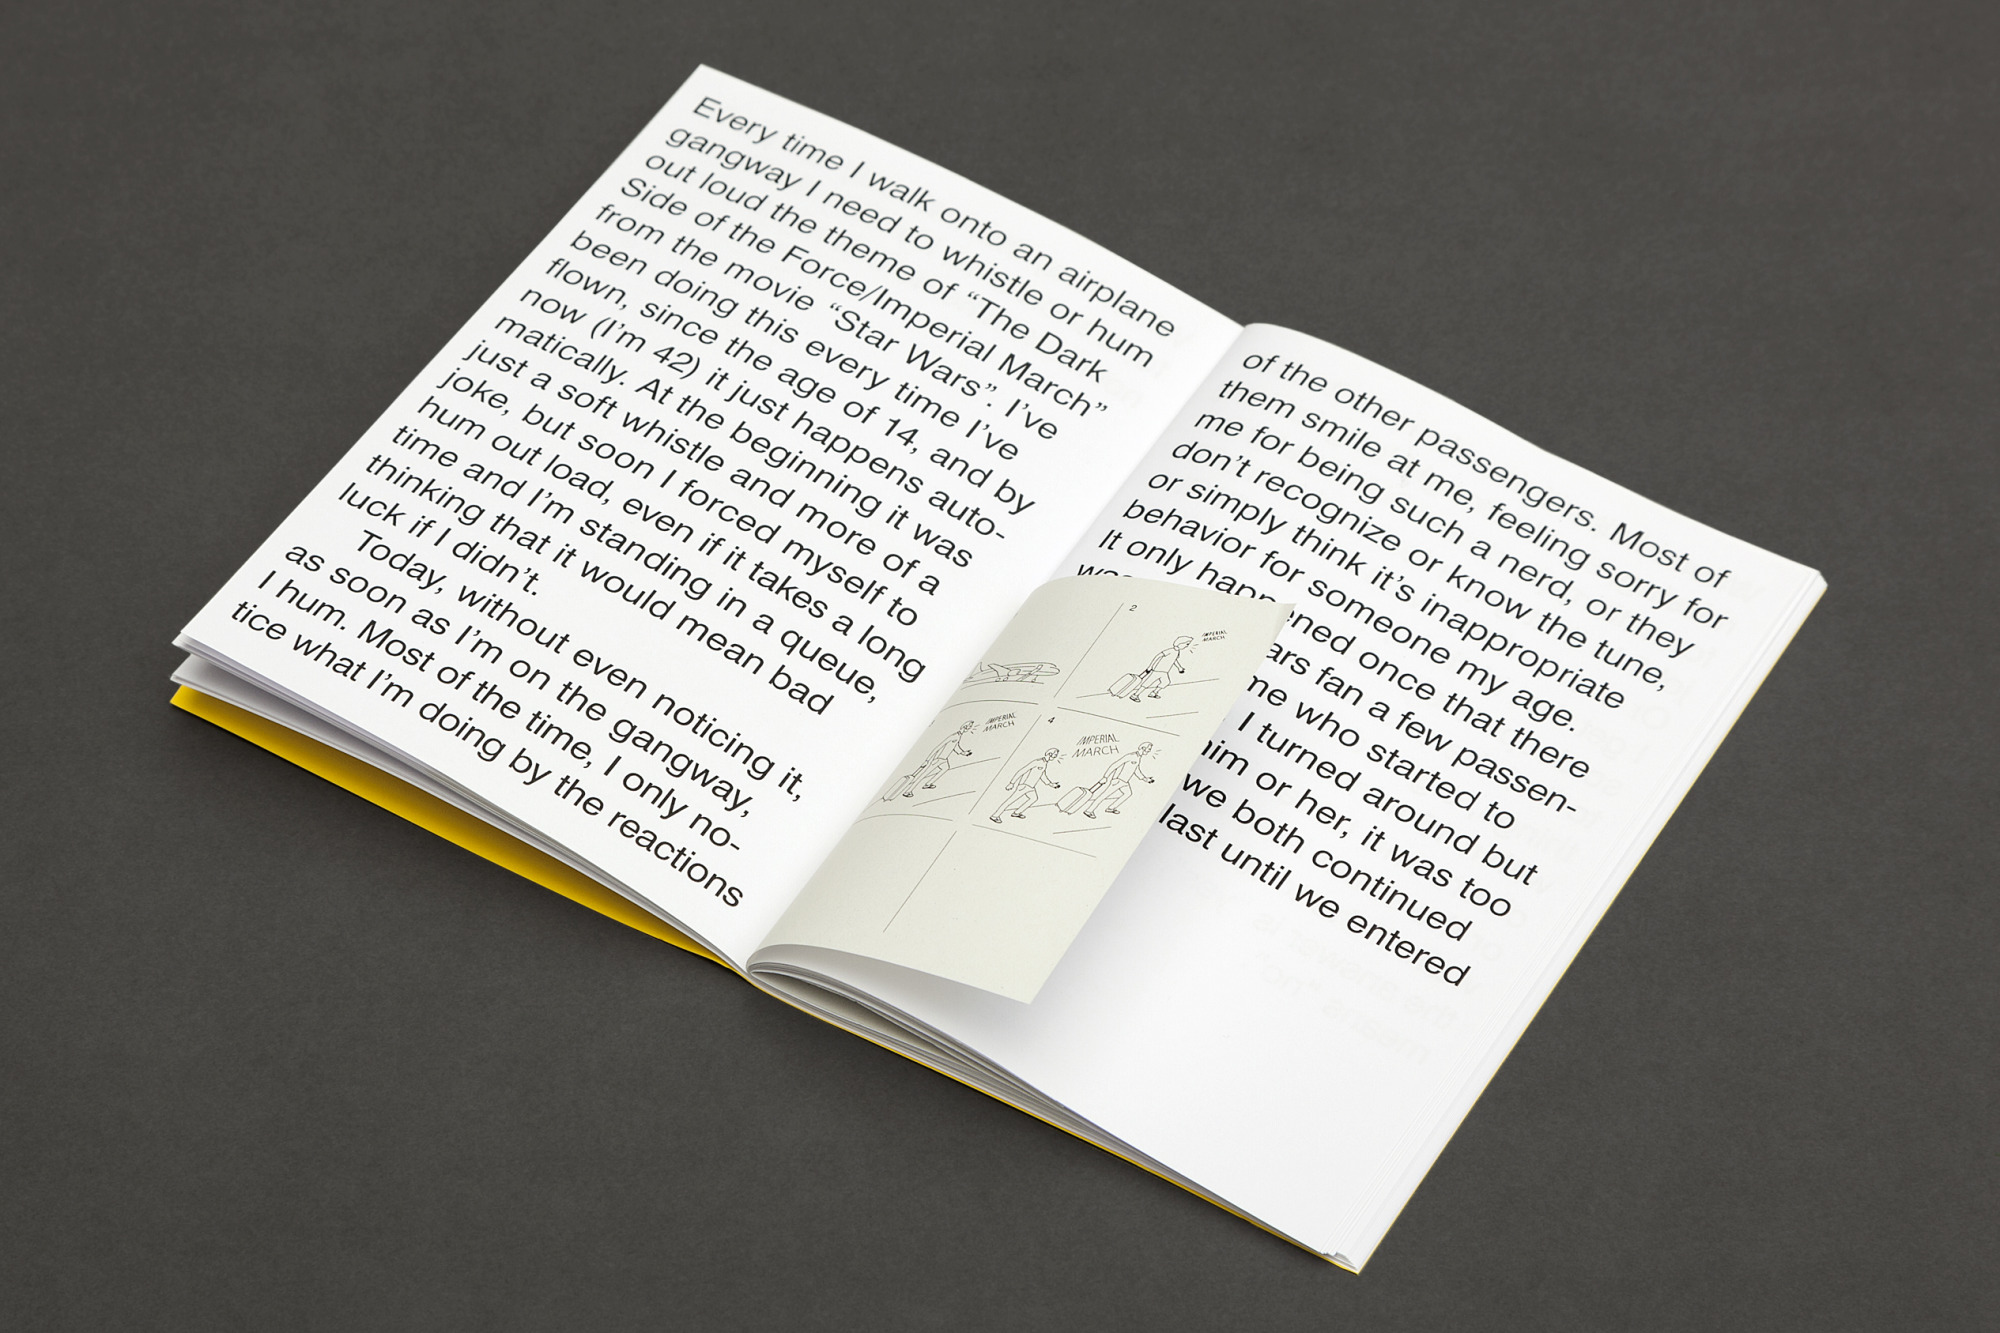 Every time I walk onto an airplane
gangway I need to whistle or hum
out loud the theme of “The Dark
Side of the Force/Imperial March”
from the movie “Star Wars”. I’ve
been doing this every time I’ve
flown, since the age of 14, and by
now (I’m 42) it just happens auto-
matically. At the beginning it was
just a soft whistle and more of a
joke, but soon I forced myself to
hum out load, even if it takes a long
time and I’m standing in a queue,
thinking that it would mean bad
luck if I didn’t.
Today, without even noticing it,
as soon as I’m on the gangway,
I hum. Most of the time, I only no-
tice what I’m doing by the reactions
of the other passengers. Most of
them smile at me, feeling sorry for
me for being such a nerd, or they
don’t recognize or know the tune,
or simply think it’s inappropriate
behavior for someone my age.
It only happened once that there
fan a few passen-
me who started to
I turned around but
him or her, it was too
we both continued
last until we entered
2
IMPERIAL
MARCH
IMPERIAL
MARCH
4
IMPERIAL
MARCH